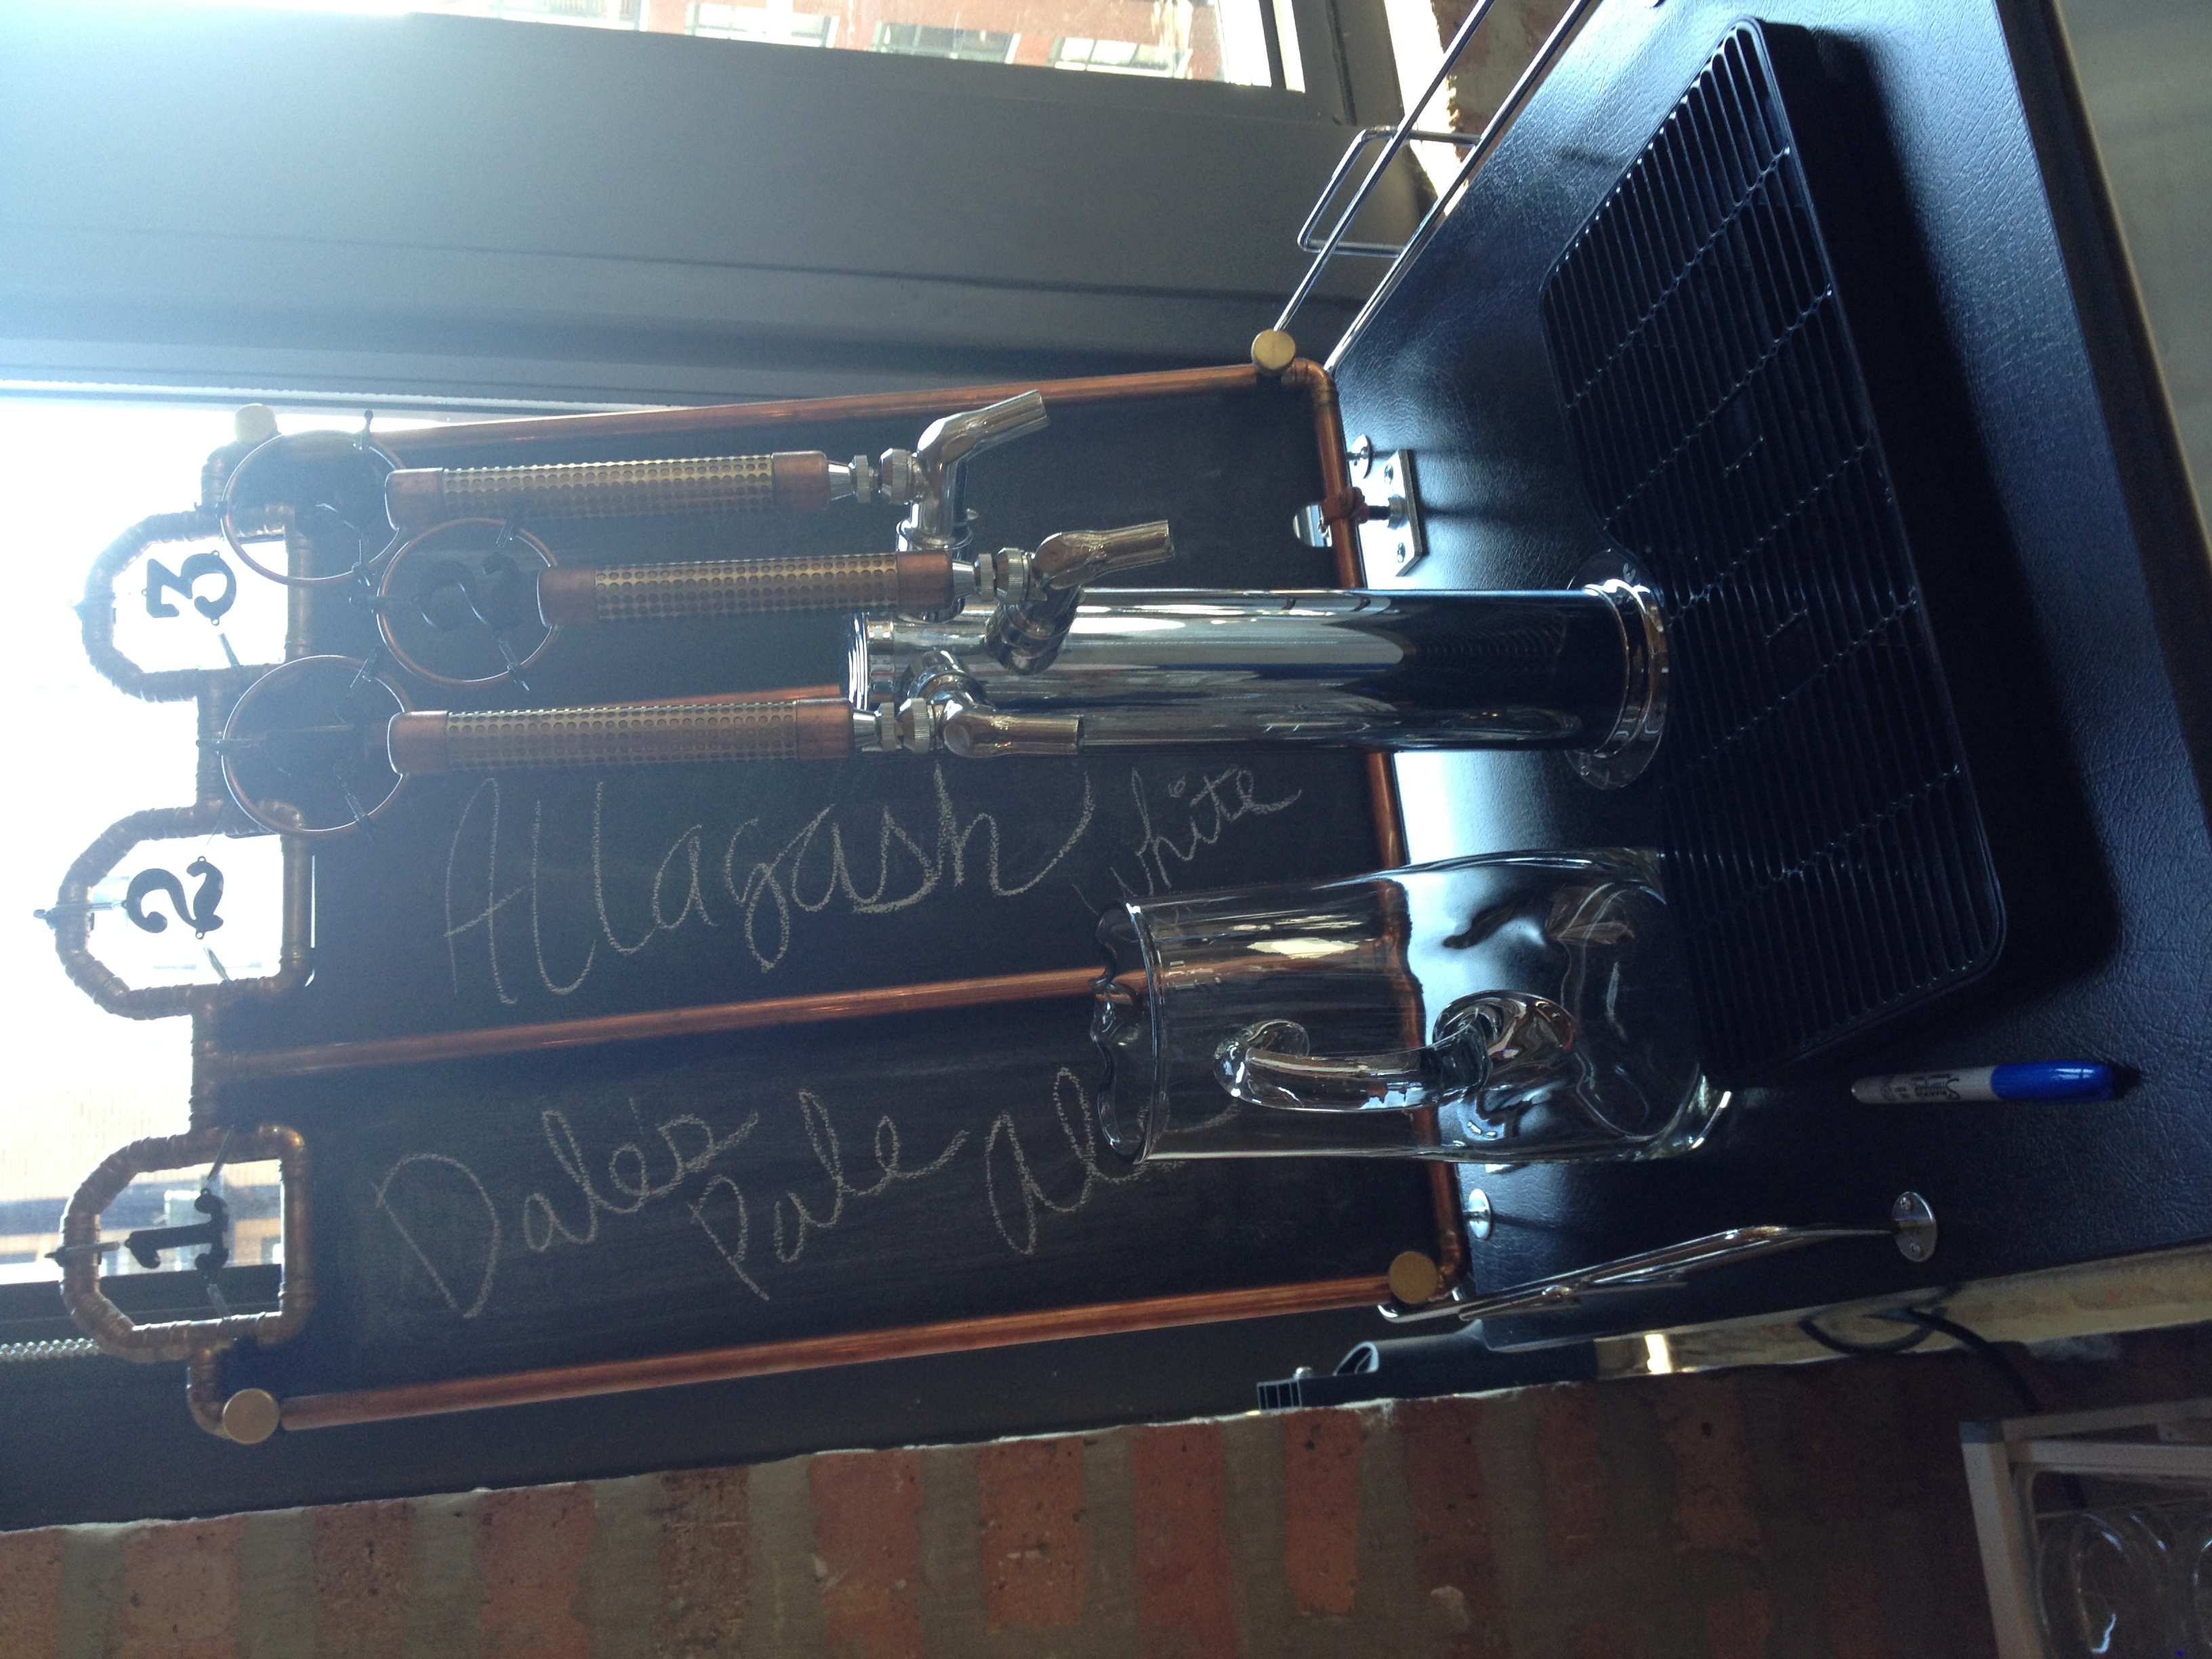 1
2
3
2
Dales Pale Ale
Allagash White
Sharpie